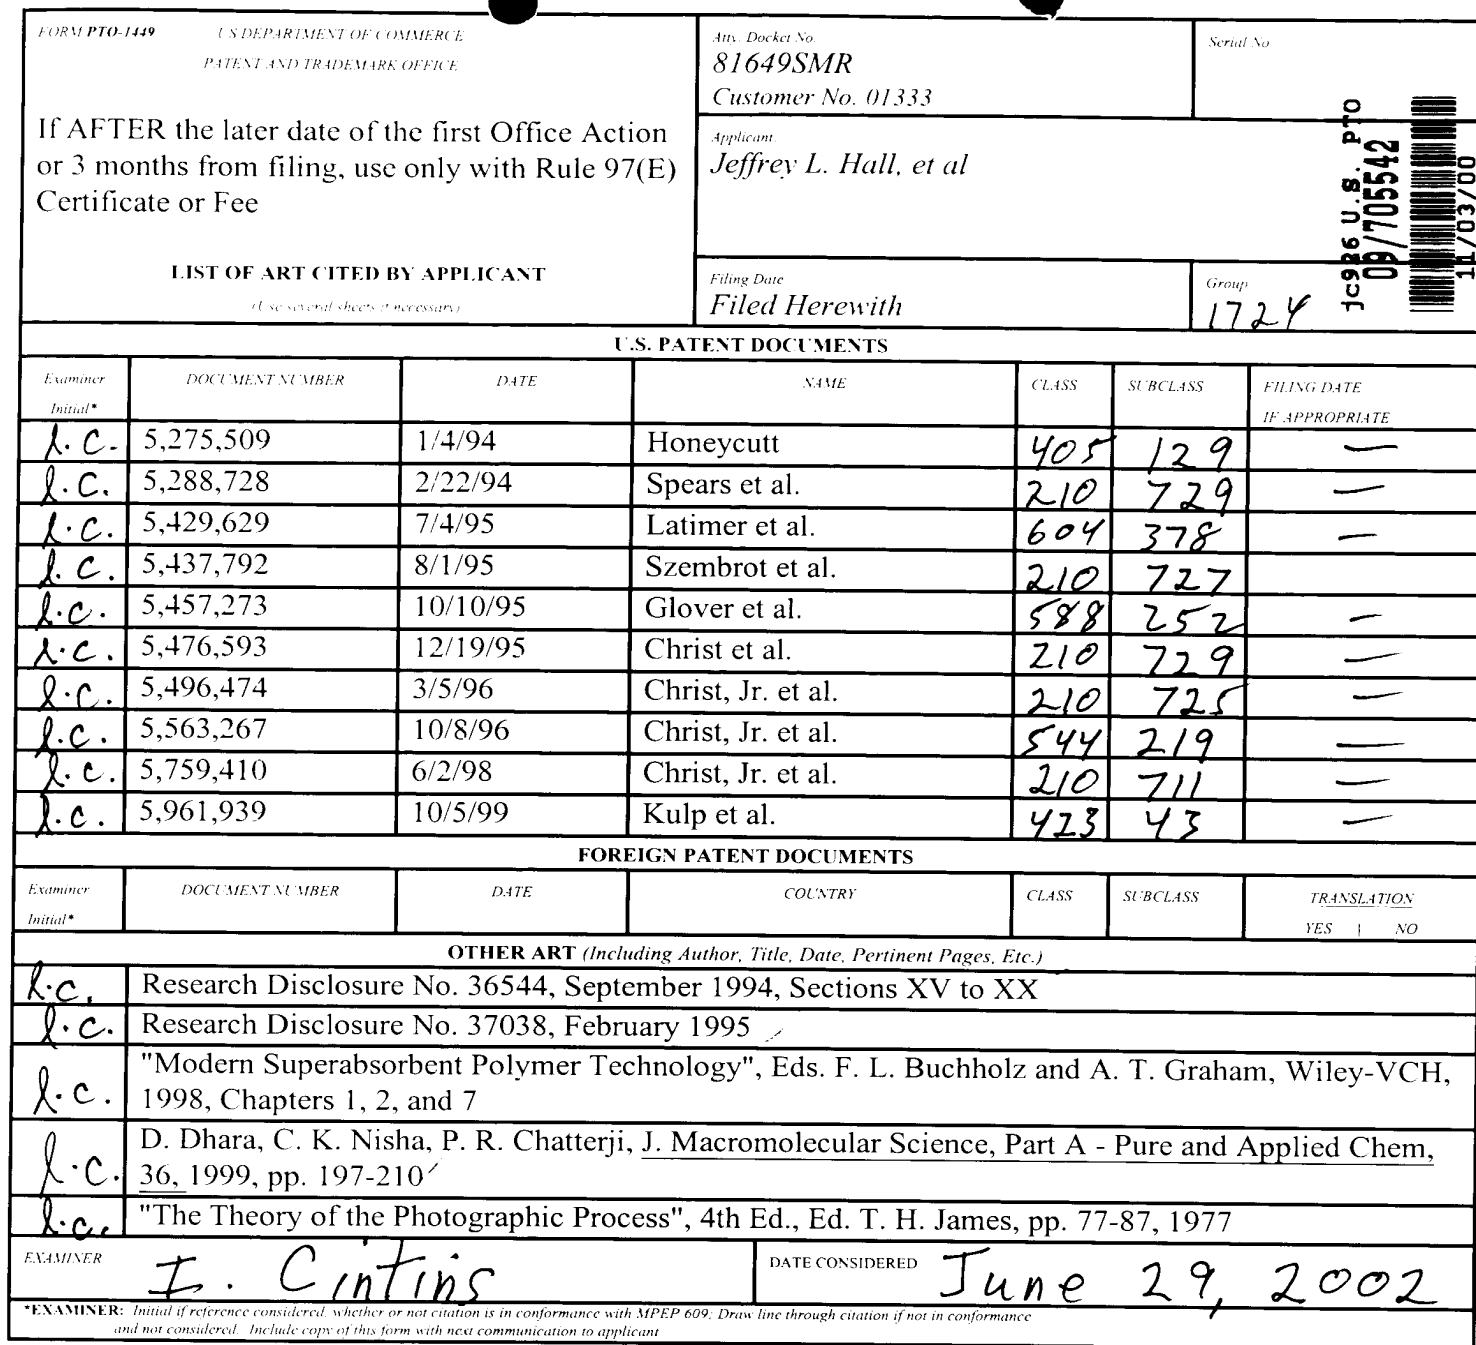 FORM PTO-1449 US DEPARTMENT OF COMMERCE
PATENT AND TRADEMARK OFFICE
If AFTER the later date of the first Office Action
or 3 months from filing, use only with Rule 97(E)
Certificate or Fee
LIST OF ART CITED BY APPLICANT
(Use several sheets if necessary)
Atty. Docket No.
81649SMR
Customer No. 01333
Serial No.
Applicant
Jeffrey L. Hall, et al
Filing Date
Filed Herewith
Group
1724
jc926 U.S. PTO
09/705542
11/03/00
U.S. PATENT DOCUMENTS
Examiner Initial* DOCUMENT NUMBER DATE NAME CLASS SUBCLASS FILING DATE IF APPROPRIATE
l.C. 5,275,509 1/4/94 Honeycutt 405 129 —
l.C. 5,288,728 2/22/94 Spears et al. 210 729 —
l.C. 5,429,629 7/4/95 Latimer et al. 604 378 —
l.C. 5,437,792 8/1/95 Szembrot et al. 210 727
l.C. 5,457,273 10/10/95 Glover et al. 588 252 —
l.C. 5,476,593 12/19/95 Christ et al. 210 729 —
l.C. 5,496,474 3/5/96 Christ, Jr. et al. 210 725 —
l.C. 5,563,267 10/8/96 Christ, Jr. et al. 544 219 —
l.C. 5,759,410 6/2/98 Christ, Jr. et al. 210 711 —
l.C. 5,961,939 10/5/99 Kulp et al. 423 43 —
FOREIGN PATENT DOCUMENTS
Examiner Initial* DOCUMENT NUMBER DATE COUNTRY CLASS SUBCLASS TRANSLATION
YES | NO
OTHER ART (Including Author, Title, Date, Pertinent Pages, Etc.)
l.C. Research Disclosure No. 36544, September 1994, Sections XV to XX
l.C. Research Disclosure No. 37038, February 1995
l.C. "Modern Superabsorbent Polymer Technology", Eds. F. L. Buchholz and A. T. Graham, Wiley-VCH,
1998, Chapters 1, 2, and 7
l.C. D. Dhara, C. K. Nisha, P. R. Chatterji, J. Macromolecular Science, Part A - Pure and Applied Chem,
36, 1999, pp. 197-210
l.C. "The Theory of the Photographic Process", 4th Ed., Ed. T. H. James, pp. 77-87, 1977
EXAMINER I. Cintins DATE CONSIDERED June 29, 2002
*EXAMINER: Initial if reference considered, whether or not citation is in conformance with MPEP 609; Draw line through citation if not in conformance
and not considered. Include copy of this form with next communication to applicant